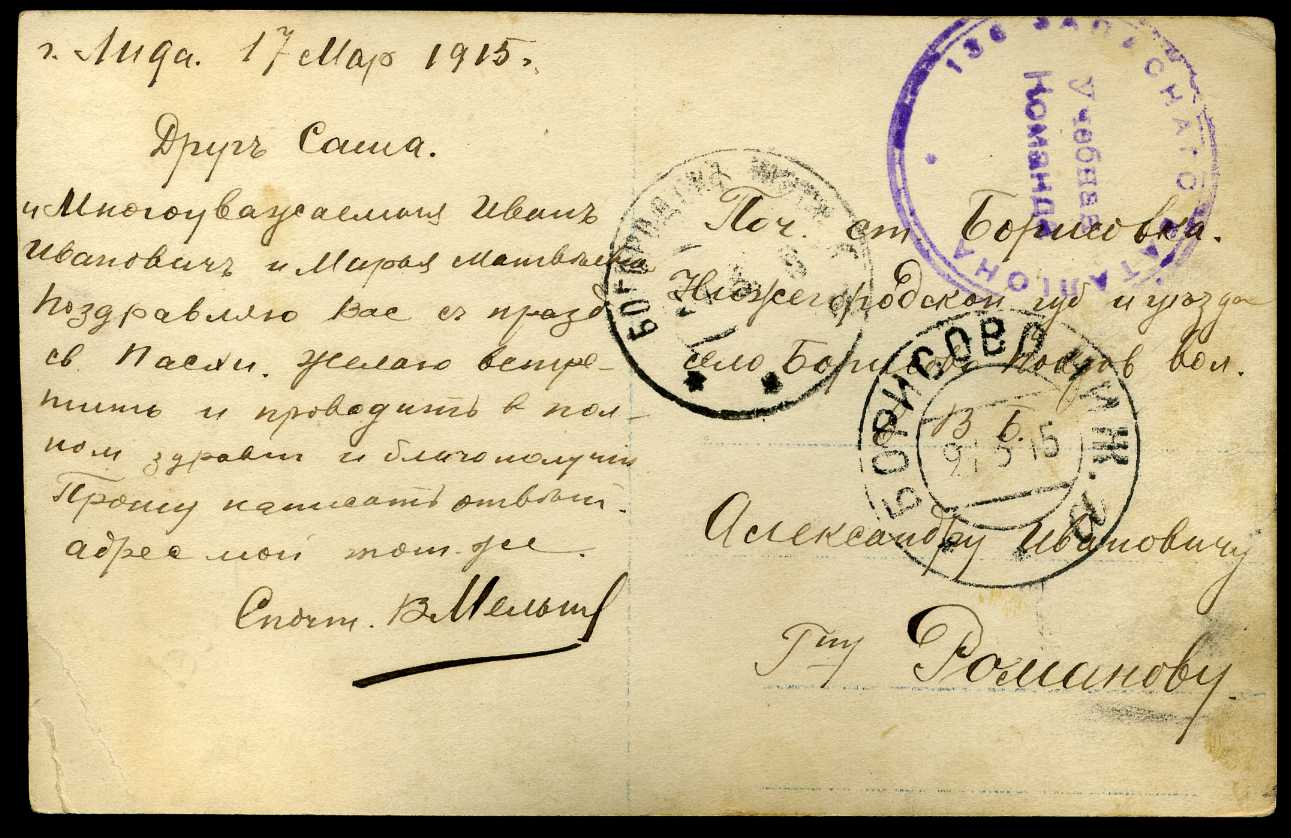 г. Лида. 17 Мар 1915 г.
Другъ Саша.
и Многоуважаемыя Иванъ
Ивановичъ и Марья Матвѣевна
Поздравляю Вас съ празд
св. Пасхи. Желаю встре-
тить и проводить в пол-
ном здравіи и благополучіи
Прошу написать отвѣт.
адрес мой тот-же.
В Мельн
136 ЗАПАСНАГО БАТАЛІОНА
Учебная
Команда
БОГОРОДСКЪ
Поч. ст. Борисовка.
Нижегородской губ и уѣзда
село Борисово вол.
БОРИСОВО НИЖ. Г.
В Б.
9 15
Александру Ивановичу
Гну Романову.